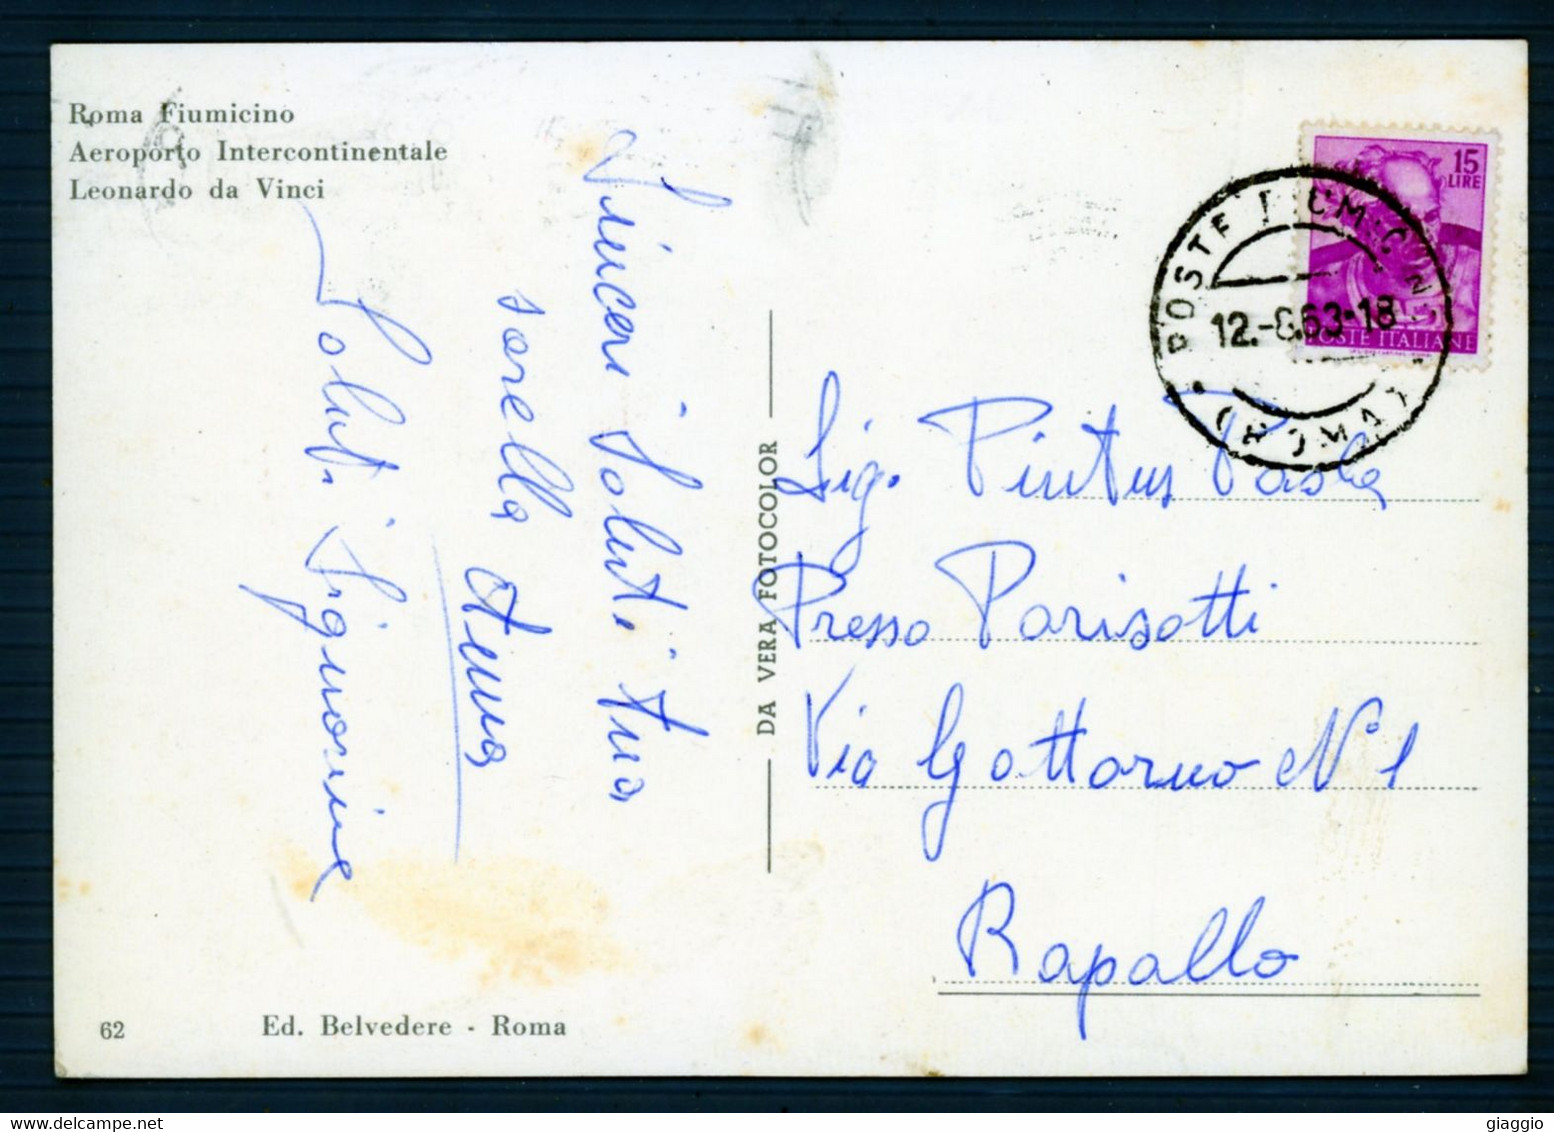 Roma Fiumicino
Aeroporto Intercontinentale
Leonardo da Vinci
Sinceri Saluti tua
sorella Anna
Saluti Signorine
62
Ed. Belvedere - Roma
DA VERA FOTOCOLOR
15
LIRE
POSTE ITALIANE
POSTE FIUMICINO
12.-8.63-18
(ROMA)
Sig. Pintus Paola
Presso Parisotti
Via Gottorno N 1
Rapallo
giaggio